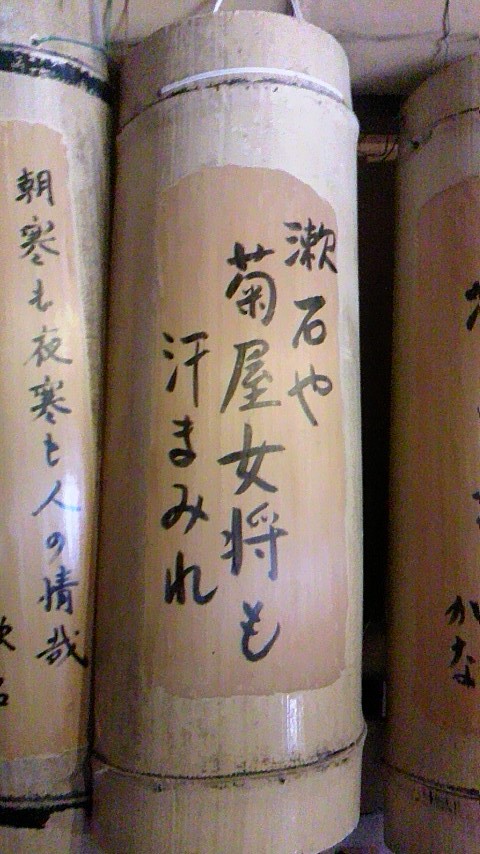 漱石や
菊屋女将も
汗まみれ
朝寒も夜寒も人の情哉
かな